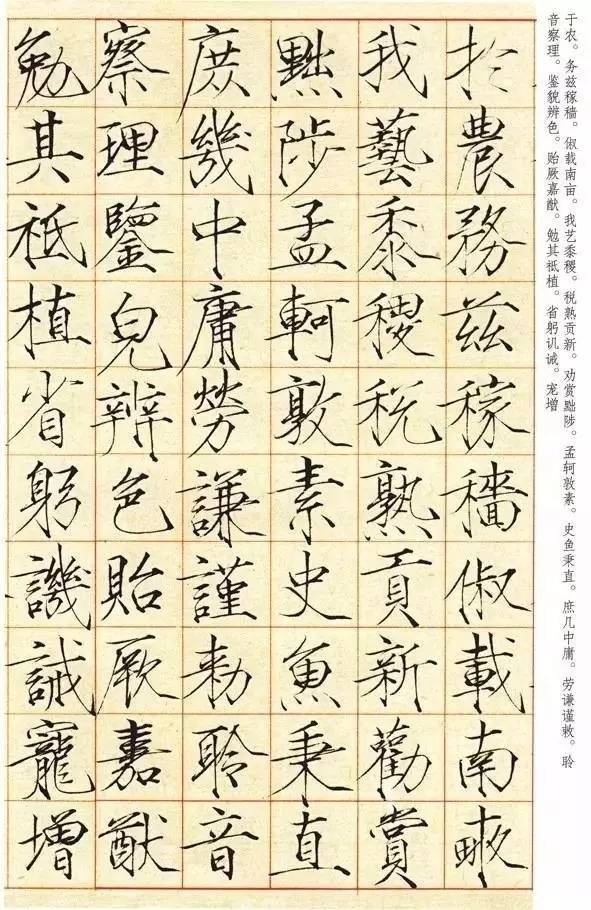 于农。务兹稼穑。俶载南亩。我艺黍稷。税熟贡新。劝赏黜陟。孟轲敦素。史鱼秉直。庶几中庸。劳谦谨敕。聆
音察理。鉴貌辨色。贻厥嘉猷。勉其祗植。省躬讥诫。宠增
於農務茲稼穡俶載南畝
我藝黍稷稅熟貢新勸賞
黜陟孟軻敦素史魚秉直
庶幾中庸勞謙謹勑聆音
察理鑒皃辨色貽厥嘉猷
勉其祗植省躬譏誡寵增